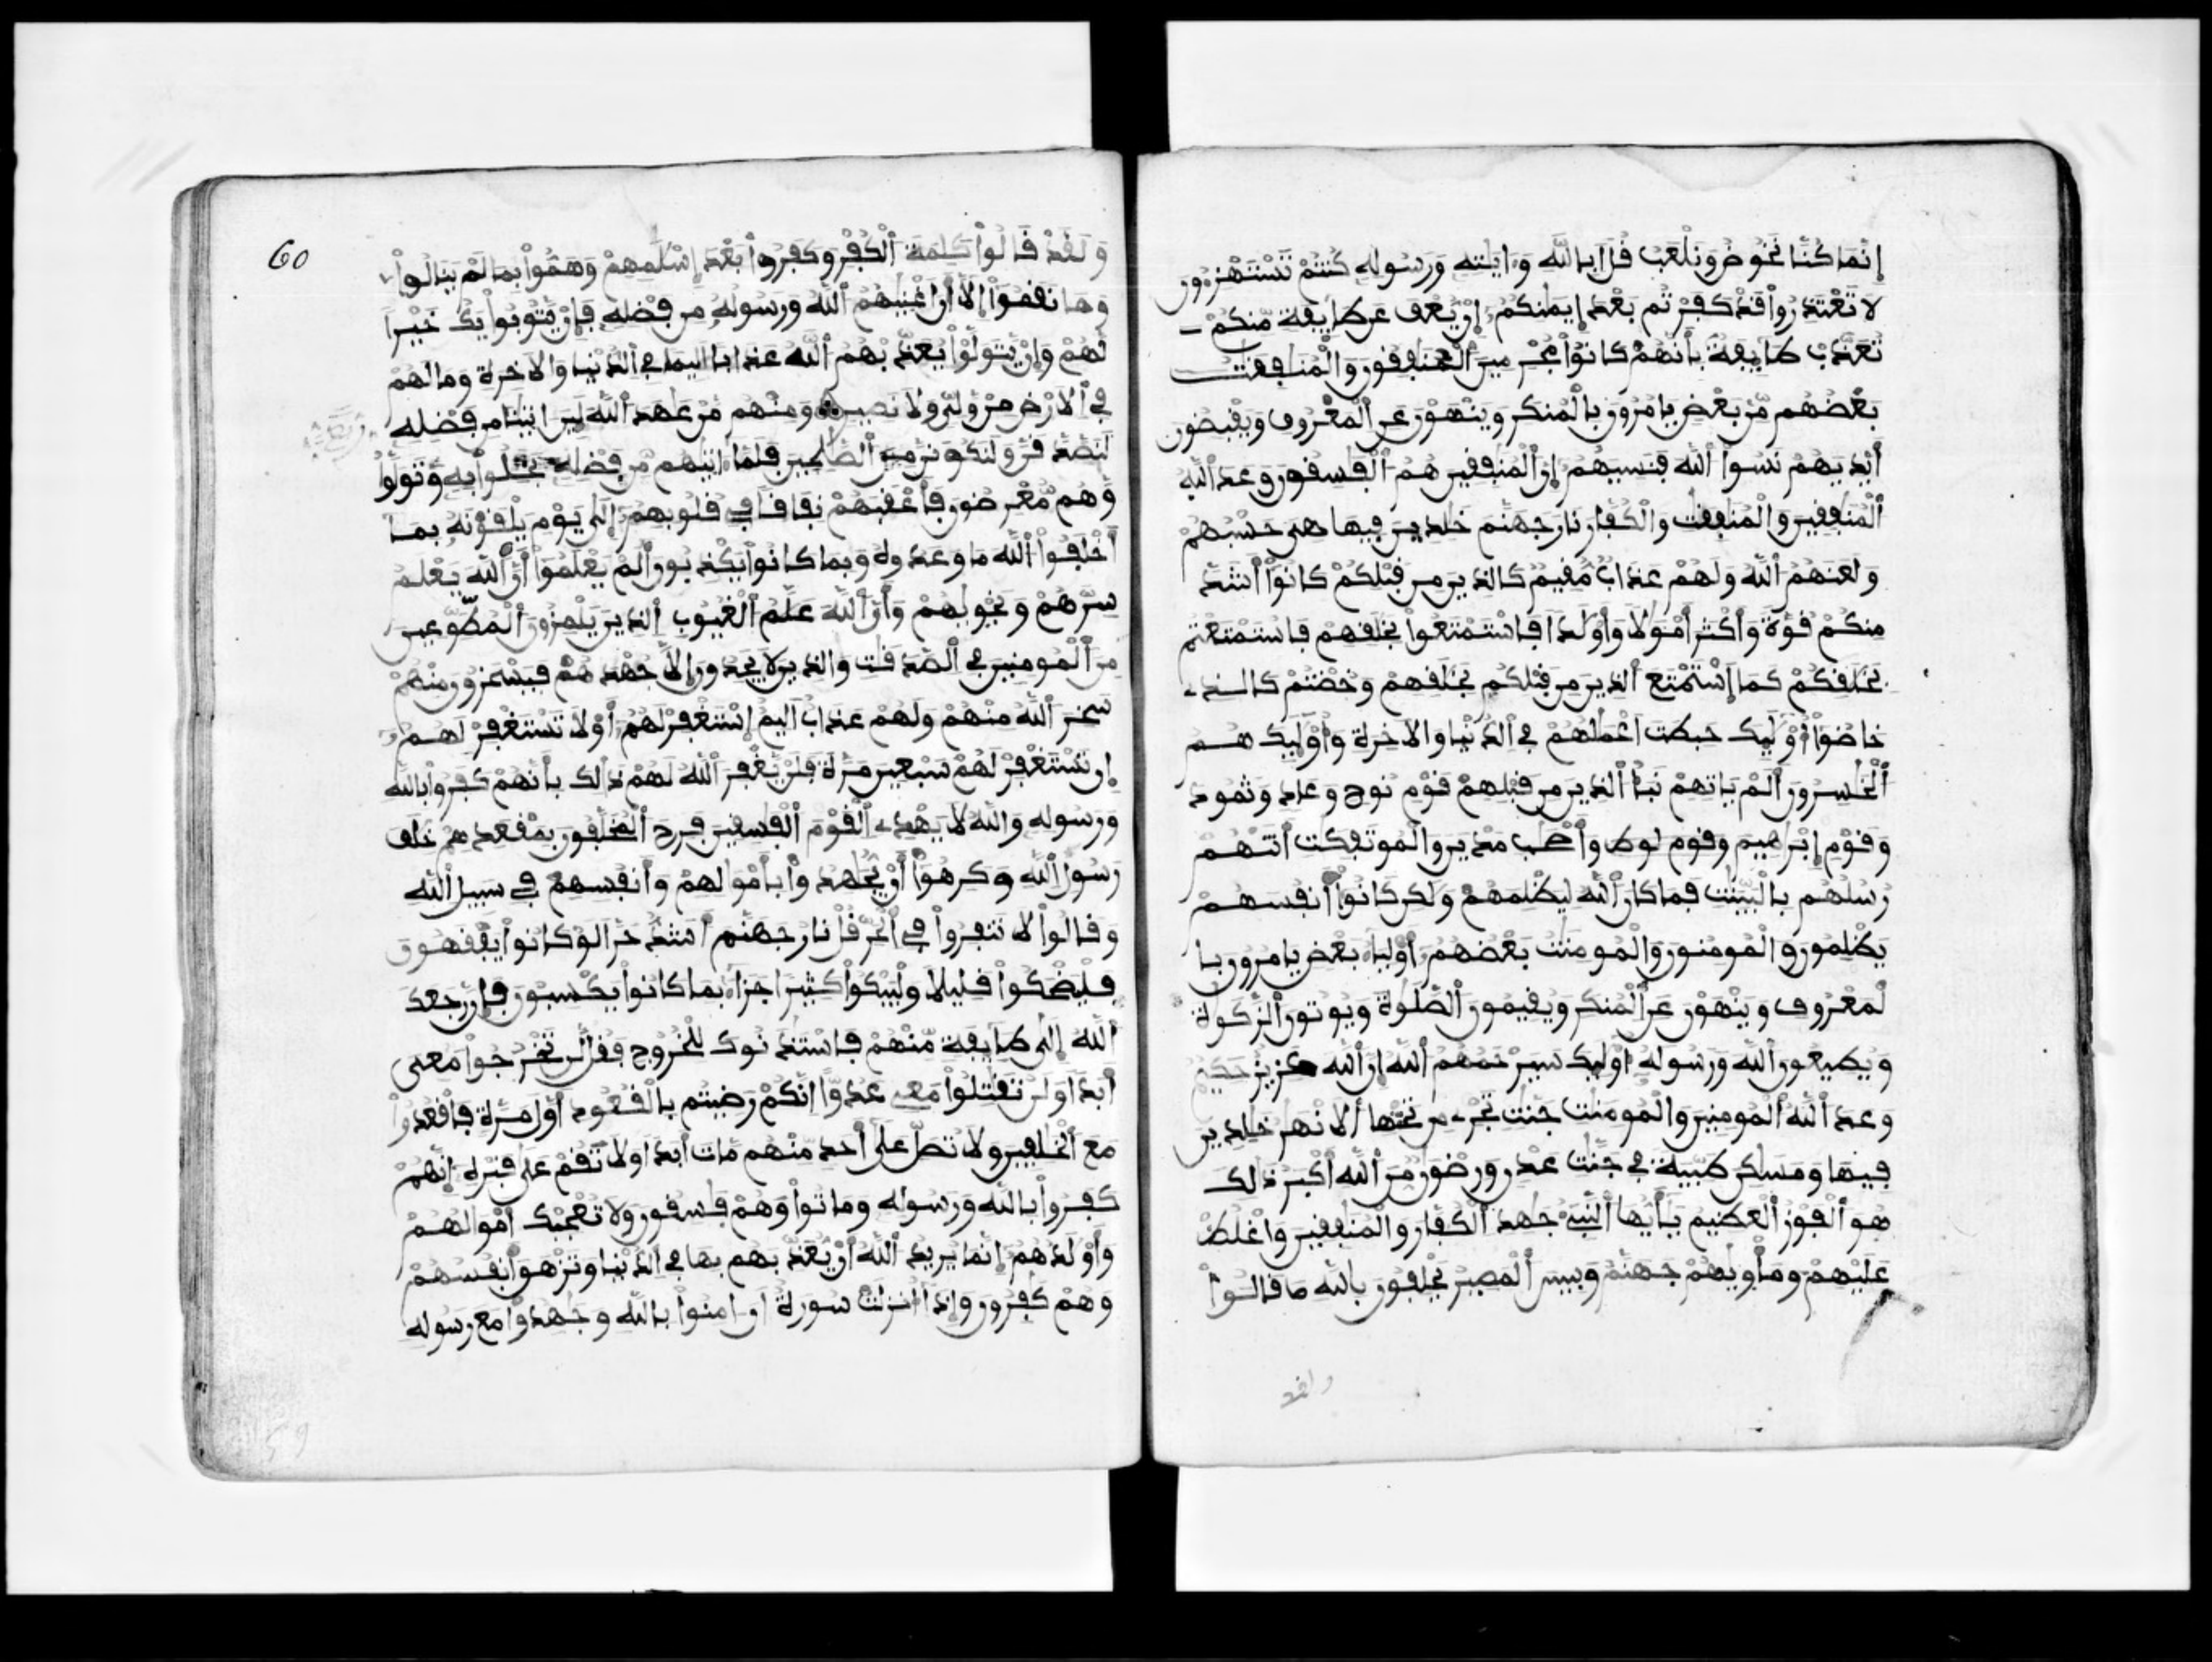 إنما كنا نخوض ونلعب قل ابالله وءايته ورسوله كنتم تستهزءون
لا تعتذروا قد كفرتم بعد إيمنكم إن يعف عن طايفة منكم
تعذب طايفة بأنهم كانوا مجرمين المنفقون والمنفقت
بعضهم من بعض يامرون بالمنكر وينهون عن المعروف ويقبضون
أيديهم نسوا الله فنسيهم إن المنفقين هم الفسقون وعد الله
المنفقين والمنفقت والكفار نار جهنم خلدين فيها هي حسبهم
ولعنهم الله ولهم عذاب مقيم كالذين من قبلكم كانوا أشد
منكم قوة وأكثر أمولا وأولدا فاستمتعوا بخلقهم فاستمتعتم
بخلقكم كما إستمتع الذين من قبلكم بخلقهم وخضتم كالذي
خاضوا أوليك حبطت اعملهم في الدنيا والاخرة وأوليك هم
الخسرون ألم ياتهم نبأ الذين من قبلهم قوم نوح وعاد وثمود
وقوم إبرهيم وقوم لوط وأصحب مدين والموتفكت اتتهم
رسلهم بالبينت فما كان الله ليظلمهم ولكن كانوا أنفسهم
يظلمون والمومنون والمومنت بعضهم أوليا بعض يامرون با
لمعروف وينهون عن المنكر ويقيمون الصلوة ويوتون الزكوة
ويطيعون الله ورسوله أوليك سيرحمهم الله ان الله عزيز حكيم
وعد الله المومنين والمومنت جنت تجري من تحتها ألانهر خلدين
فيها ومسكن طيبة في جنت عدن ورضون من الله أكبر ذالك
هو الفوز العظيم يأيها النبيء جهد الكفار والمنفقين واغلظ
عليهم ومأويهم جهنم وبيس المصير يحلفون بالله ما قالوا
ولقد
60
ولقد قالوا كلمة الكفر وكفروا بعد إسلمهم وهموا بما لم ينالوا
وما نقموا إلا أن اغنيهم الله ورسوله من فضله فإن يتوبوا يك خيرا
لهم وإن يتولوا يعذبهم الله عذابا اليما في الدنيا والاخرة وما لهم
في ألارض من ولي ولا نصير ومنهم من عهد الله لين اتينا من فضله
لنصدقن ولنكونن من الصلحين فلما اتيهم من فضله بخلوا به وتولوا
وهم معرضون فأعقبهم نفاقا في قلوبهم إلى يوم يلقونه بما
أخلفوا الله ما وعدوه وبما كانوا يكذبون ألم يعلموا أن الله يعلم
سرهم ونجويهم وأن الله علم الغيوب الذين يلمزون المطوعين
من المومنين في الصدقت والذين لا يجدون إلا جهدهم فيسخرون منهم
سخر الله منهم ولهم عذاب اليم إستغفر لهم أو لا تستغفر لهم
إن تستغفر لهم سبعين مرة فلن يغفر الله لهم ذالك بأنهم كفروا بالله
ورسوله والله لا يهدي القوم الفسقين فرح المخلفون بمقعدهم خلف
رسول الله وكرهوا أن يجهدوا بأمولهم وأنفسهم في سبيل الله
وقالوا لا تنفروا في الحر قل نار جهنم أشد حرا لو كانوا يفقهون
فليضحكوا قليلا وليبكوا كثيرا جزاء بما كانوا يكسبون فإن رجعك
الله إلى طايفة منهم فاستئذنوك للخروج فقل لن تخرجوا معي
أبدا ولن تقتلوا معي عدوا انكم رضيتم بالقعود أول مرة فاقعدوا
مع الخلفين ولا تصل على أحد منهم مات أبدا ولا تقم على قبره إنهم
كفروا بالله ورسوله وماتوا وهم فسقون ولا تعجبك أموالهم
وأولدهم إنما يريد الله أن يعذبهم بها في الدنيا وتزهق أنفسهم
وهم كفرون وإذا أنزلت سورة أن امنوا بالله وجهدوا مع رسوله
59